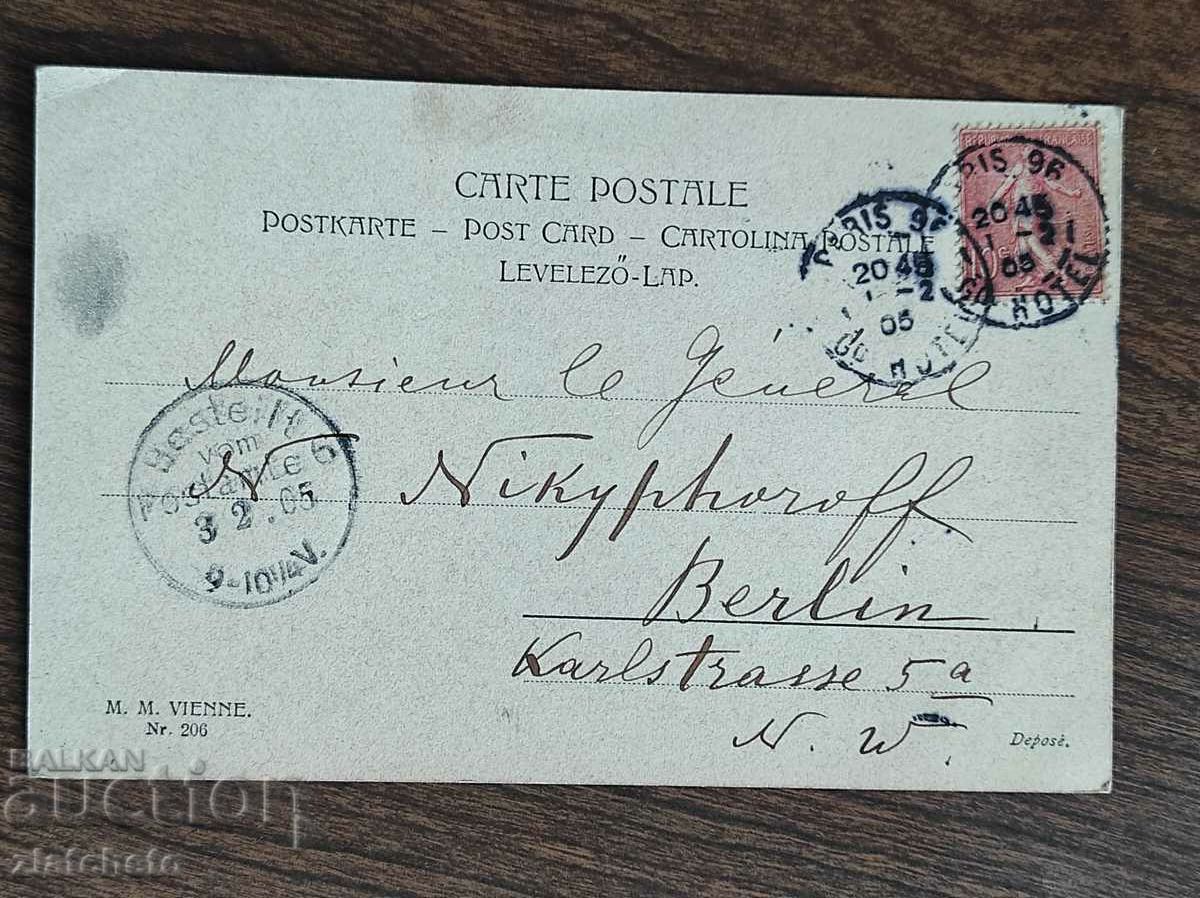 CARTE POSTALE
POSTKARTE – POST CARD – CARTOLINA POSTALE
LEVELEZŐ-LAP.
REPUBLIQUE FRANÇAISE
PARIS 96
20 45
1 -2
05
Gd HOTEL
PARIS 96
20 45
1 -2
05
Gd HOTEL
Monsieur le Général
N. Nikyphoroff
Berlin
Karlstrasse 5a
N. W.
Bestellt
vom
Postamte 6
3 2.05
9-10¼V.
M. M. VIENNE.
Nr. 206
Deposé.
BALKAN
auction
zlatcheto